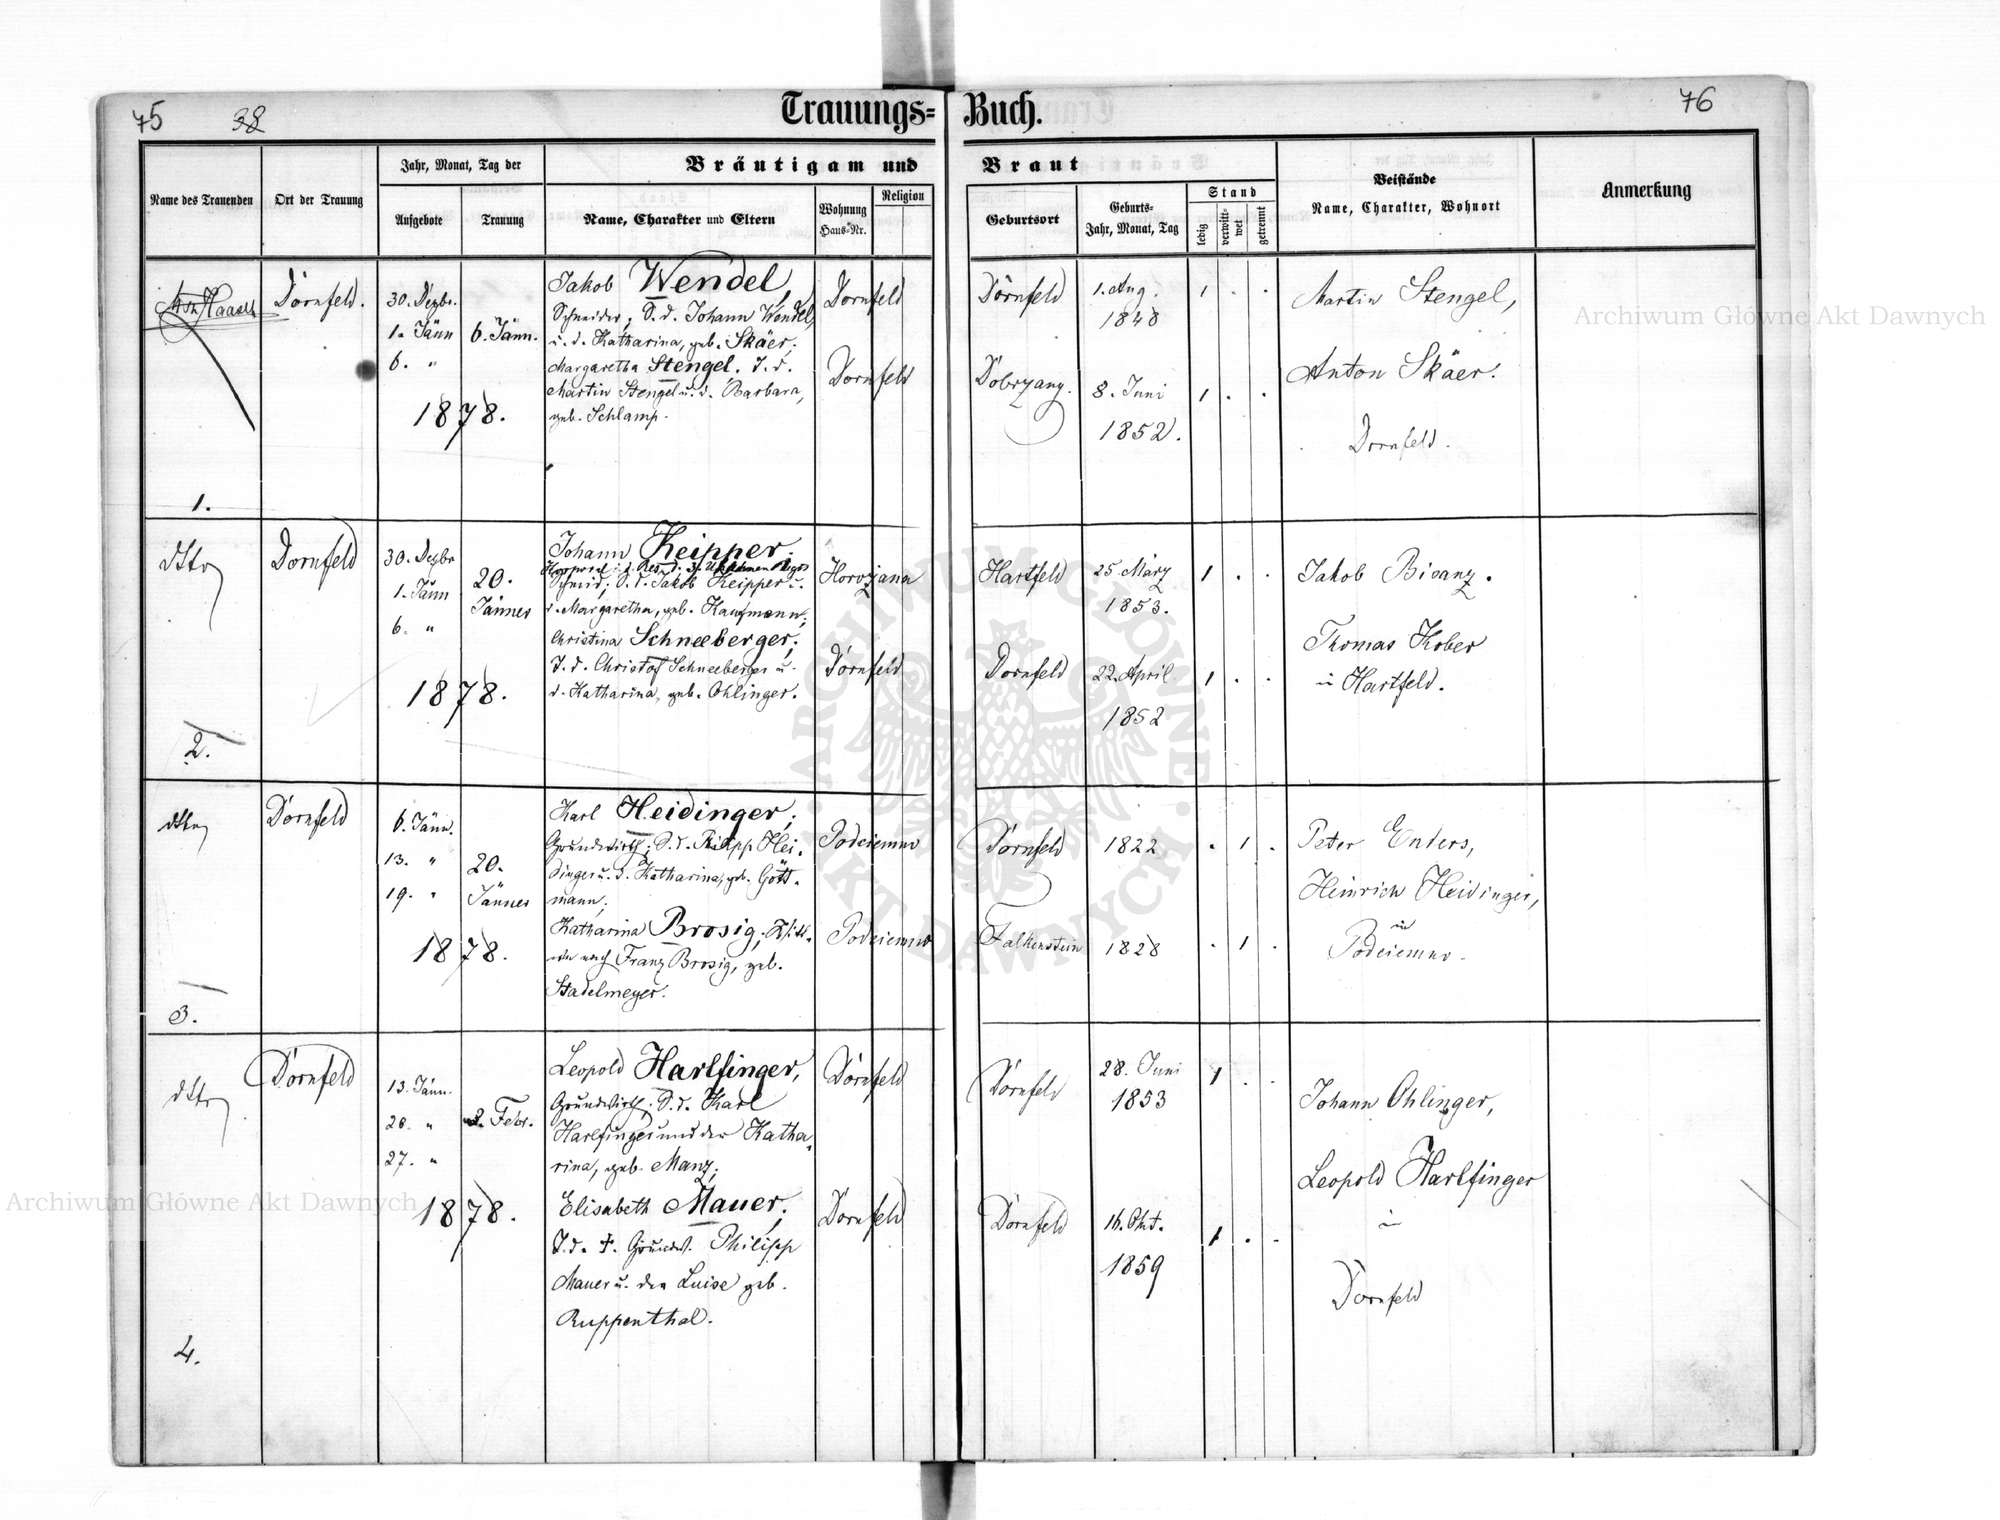 75
38
Trauungs=
Buch.
76
Name des Trauenden
Ort der Trauung
Jahr, Monat, Tag der
Aufgebote
Trauung
Bräutigam und
Braut
Name, Charakter und Eltern
Wohnung
Haus-Nr.
Religion
Geburtsort
Geburts-
Jahr, Monat, Tag
Stand
ledig
verwitt-
wet
getrennt
Beistände
Name, Charakter, Wohnort
Anmerkung
Haase
Dornfeld.
30. Dezbr.
1. Jänn
6. "
6. Jänn.
1878.
Jakob Wendel,
Schneider; S. d. Johann Wendel,
u. d. Katharina, geb. Skäer;
Margaretha Stengel. T. d.
Martin Stengel u. d. Barbara,
geb. Schlamp.
Dornfeld
Dornfeld
Dornfeld
1. Aug.
1848
1 . .
Dobrzany.
8. Juni
1852.
1 . .
Martin Stengel,
Anton Skäer.
Dornfeld.
1.
dtto
Dornfeld
30. Dezbr
1. Jänn
6. "
20.
Jänner
1878.
Johann Keipper;
Schmid; S. d. Jakob Keipper u.
d. Margaretha, geb. Kaufmann;
Christina Schneeberger;
T. d. Christof Schneeberger u.
d. Katharina, geb. Ohlinger.
Horozana
Dornfeld
Hartfeld
25 März
1853.
1 . .
Dornfeld
22. April
1852
1 . .
Jakob Bisanz.
Thomas Kober
in Hartfeld.
2.
dtto
Dornfeld
6. Jänn.
13. "
19. "
20.
Jänner
1878.
Karl Heidinger;
Grundwirth; S. d. Philipp Hei-
dinger u. d. Katharina, geb. Gött-
mann;
Katharina Brosig; Witt-
we nach Franz Brosig, geb.
Stadelmeyer.
Podciemno
Podciemno
Dornfeld
1822
. 1 .
Falkenstein
1828
. 1 .
Peter Enders,
Heinrich Heidinger,
in
Podciemno.
3.
dtto
Dornfeld
13. Jänn.
20. "
27. "
2. Febr.
1878.
Leopold Harlfinger,
Grundwirth; S. d. Karl
Harlfinger und der Katha-
rina, geb. Manz;
Elisabeth Mauer;
T. d. †. Grundw. Philipp
Mauer u. der Luise geb.
Ruppenthal.
Dornfeld
Dornfeld
Dornfeld
28. Juni
1853
1 . .
Dornfeld
16. Okt.
1859
1 . .
Johann Ohlinger,
Leopold Harlfinger
in
Dornfeld
4.
Archiwum Główne Akt Dawnych
Archiwum Główne Akt Dawnych
ARCHIWUM GŁÓWNE AKT DAWNYCH